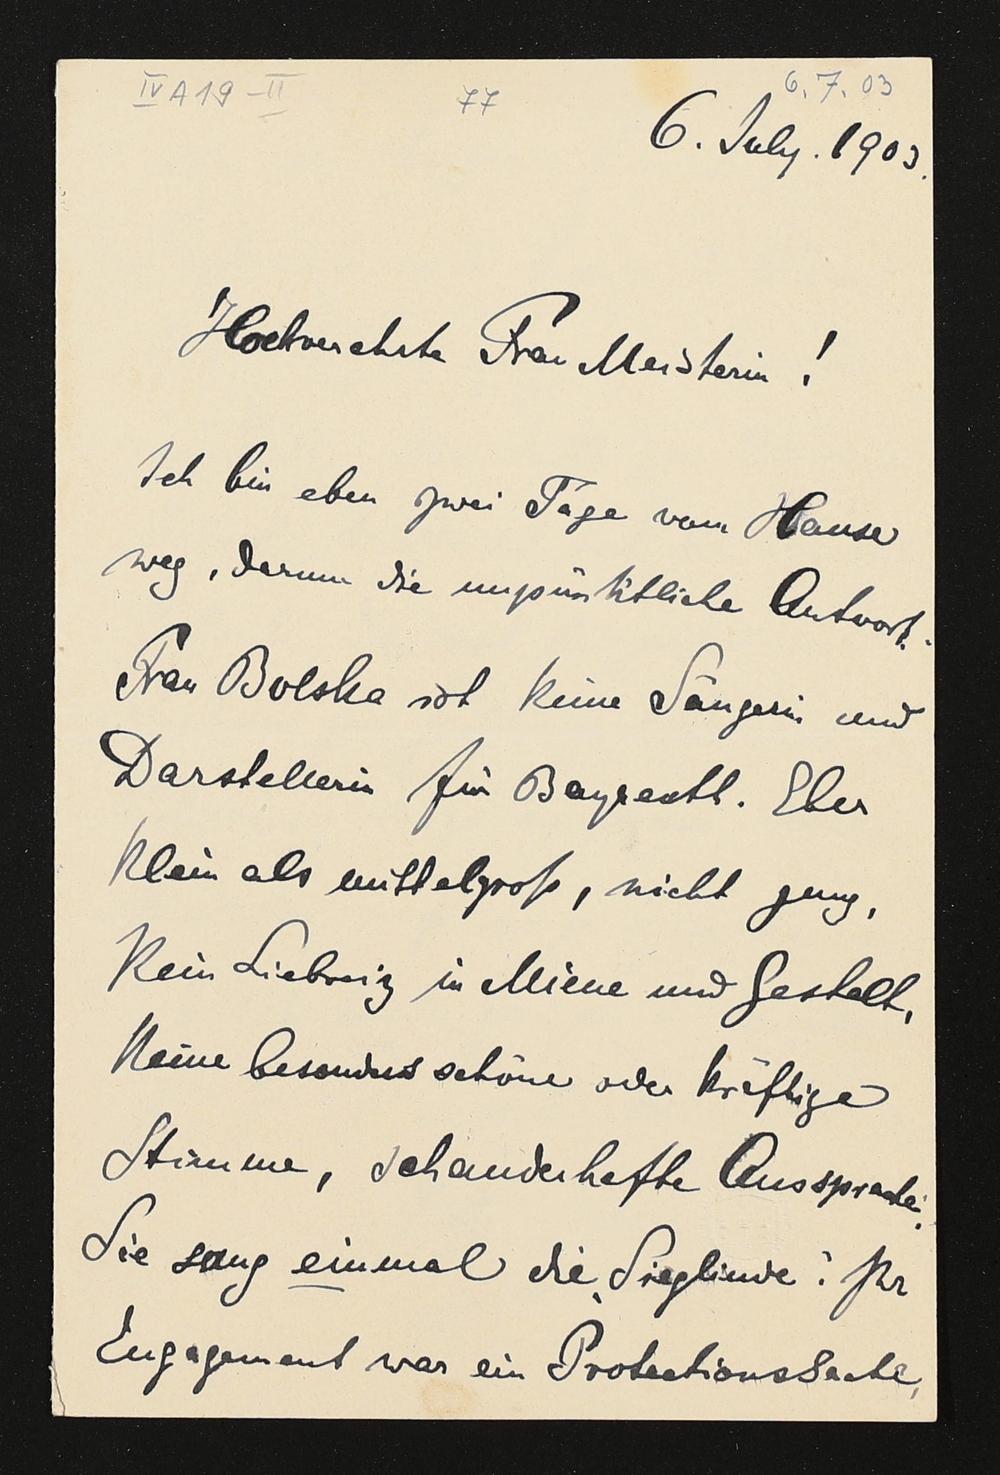 IV A 19 - II
77
6. 7. 03
6. July. 1903.
Hochverehrte Frau Meisterin!
Ich bin eben zwei Tage vom Hause
weg, darum die unpünktliche Antwort.
Frau Bolska ist keine Sängerin und
Darstellerin für Bayreuth. Eher
klein als mittelgroß, nicht jung,
kein Liebreiz in Miene und Gestalt,
keine besonders schöne oder kräftige
Stimme, schauderhafte Aussprache.
Sie sang einmal die Sieglinde! Ihr
Engagement war ein Protectionssache,